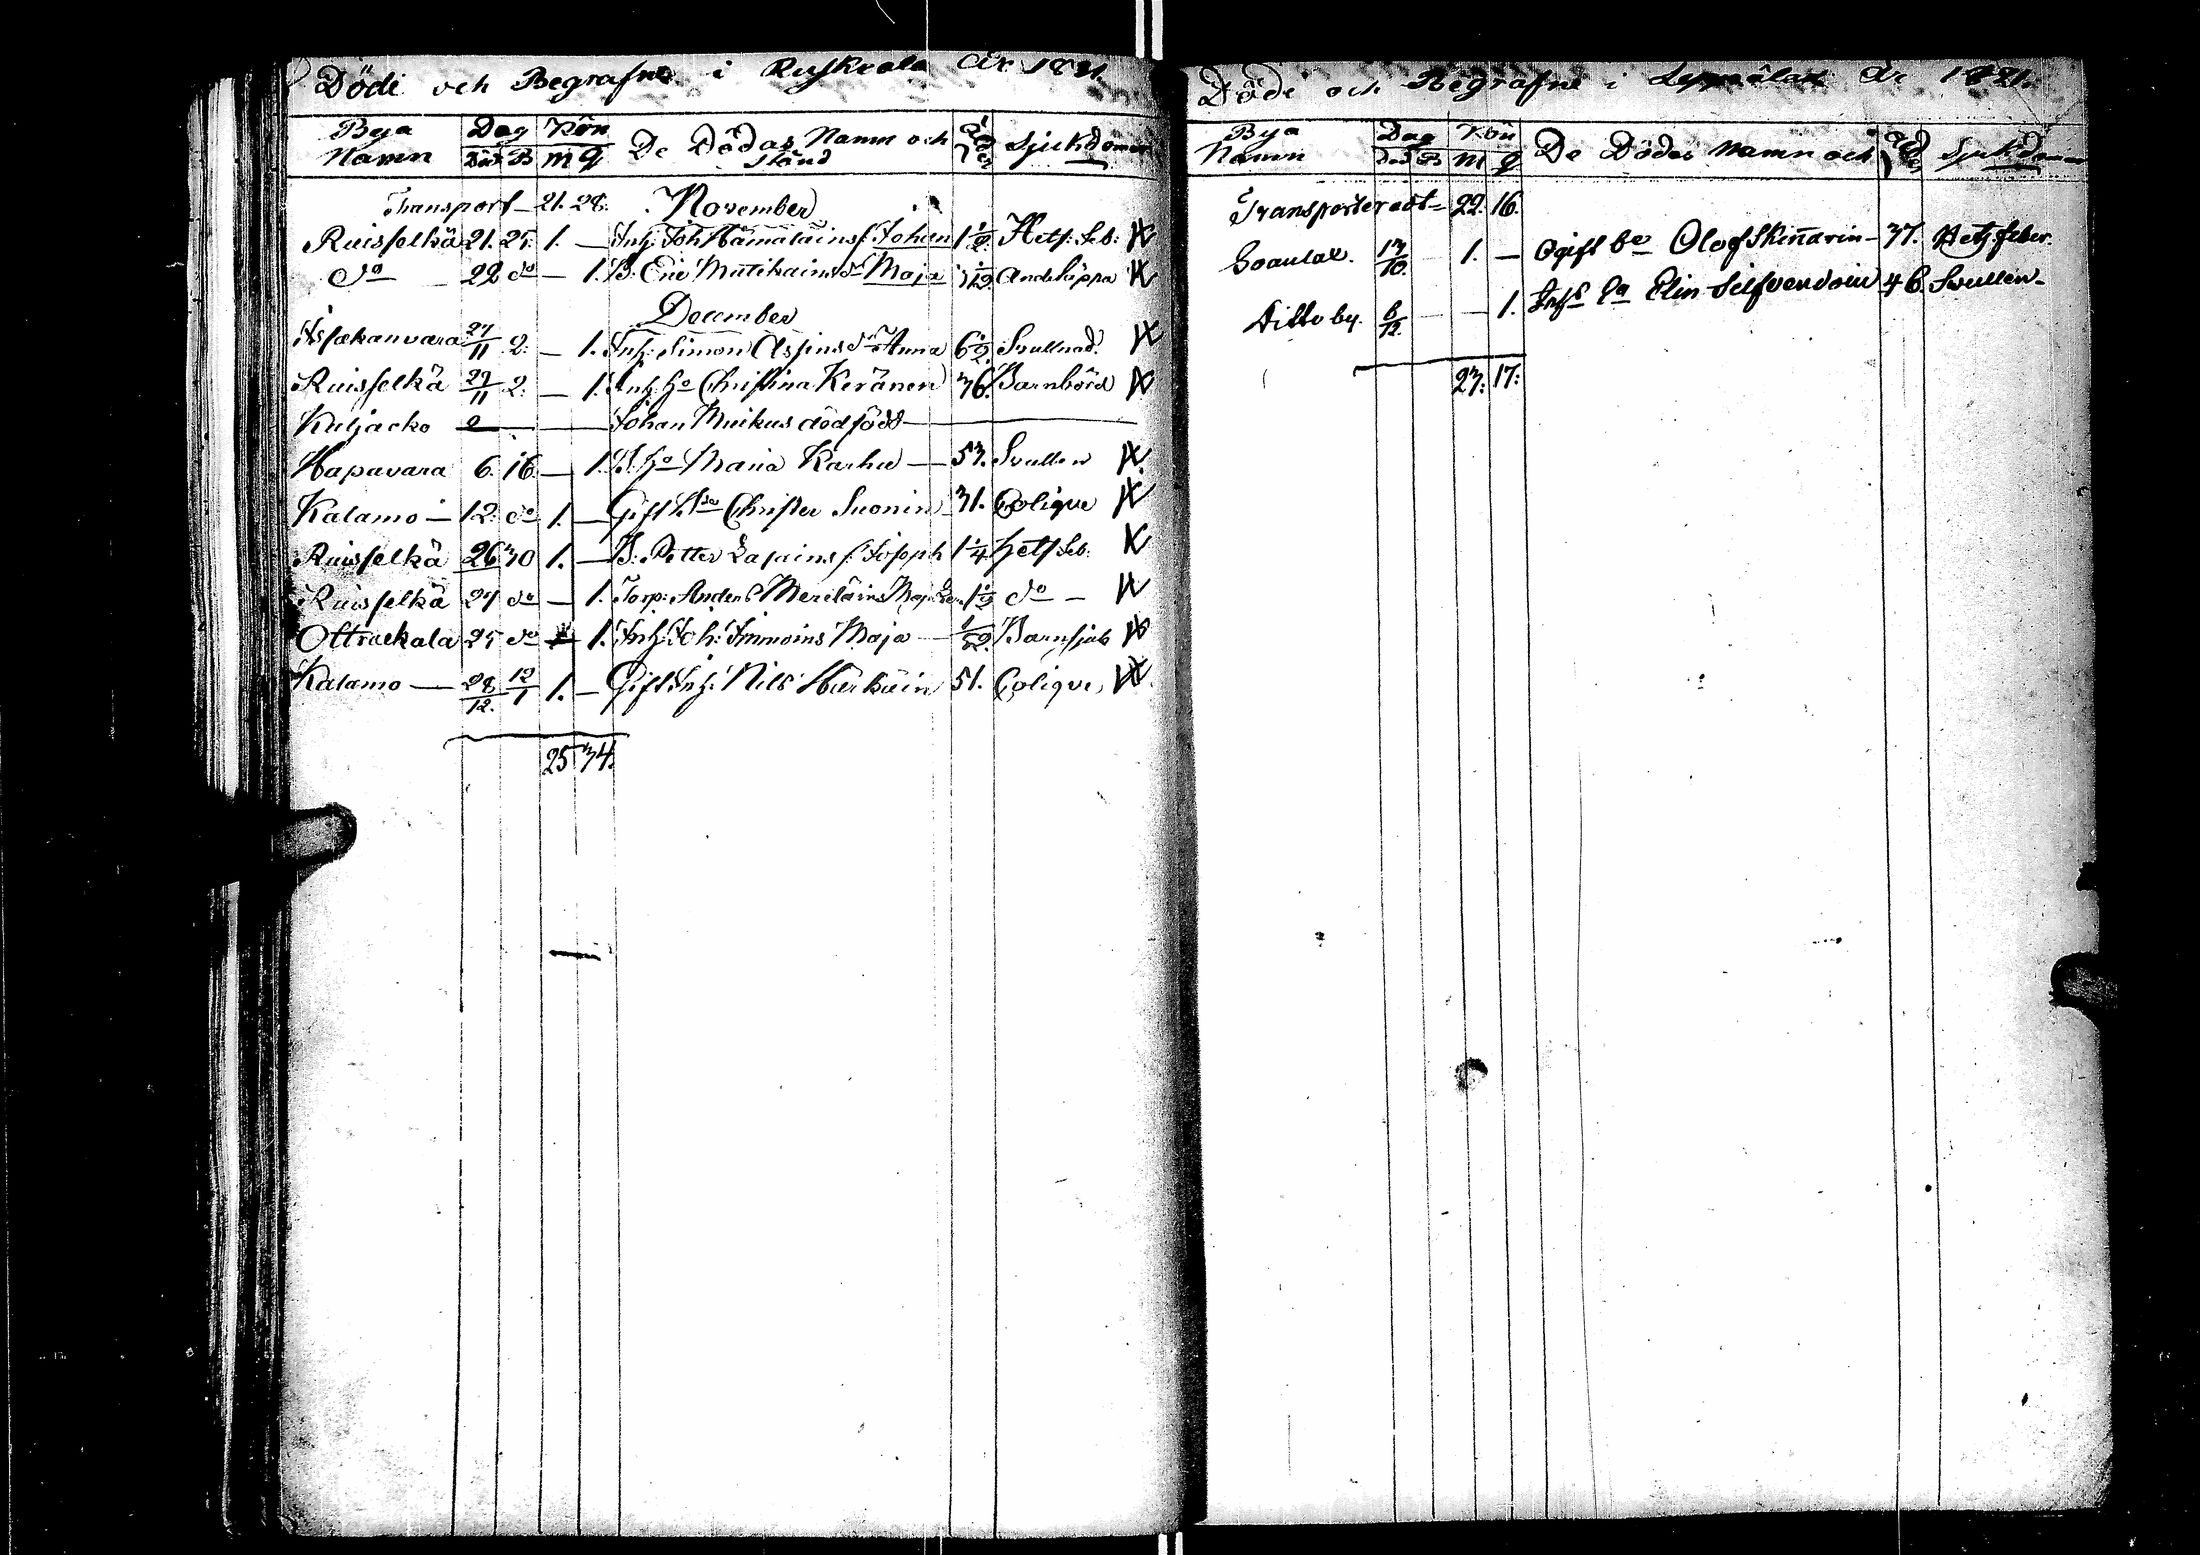 Döde och Begrafne i Ruskeala År 1821
Bya Namn Dag Död B Kön M Q De Dödas Namn och stånd Ålder Sjukdomar
Transport — 21. 28. November
Ruisselkä 21. 25. 1. — Inh: Joh Hämäläins s. Johan 1 1/2 Hets. Feb:
do 22 do — 1. B. Eric Mutikains dr Maja Andtäppa
December
27/11 2. — 1. Inh: Simon Asains dr Anna 6 1/2 Svullnad.
Ruisselkä 29/11 2. — 1. Inh: ho Christina Keränen 36. Barnbörd
Kuljacko 2 — Johan Muikus dödfödt —
Hapavara 6. 16. — 1. B. ho Maria Karhu — 53. Svullen
Kalamo — 12. do 1. — Gift Christer Suonin 31. Colique
Ruisselkä 26 30 1. — B. Petter s. Joseph 1 1/4 Hets Feb:
Ruisselkä 27 do — 1. Torp: Anders Meriläins Maja 1 1/2 do —
Ottrackala 25 do 1. Inh: Joh: Immoins Maja — 1/52. Barnsjuk
Kalamo — 28/12. 12/1 1. — Gift Inh: Nils Hurkuin 51. Colique
25 34.
Döde och Begrafne i Leppälax År 1821.
Bya Namn Dag Död B Kön M Q De Dödas Namn och Ålder Sjukdomar
Transporteradt — 22. 16.
13/10. — 1. — Ogift be Olof Skinnarin — 37. Hetz feber.
Ditto by. 6/12. — — 1. Elin Silfvendoin 46. Svullen —
23: 17: